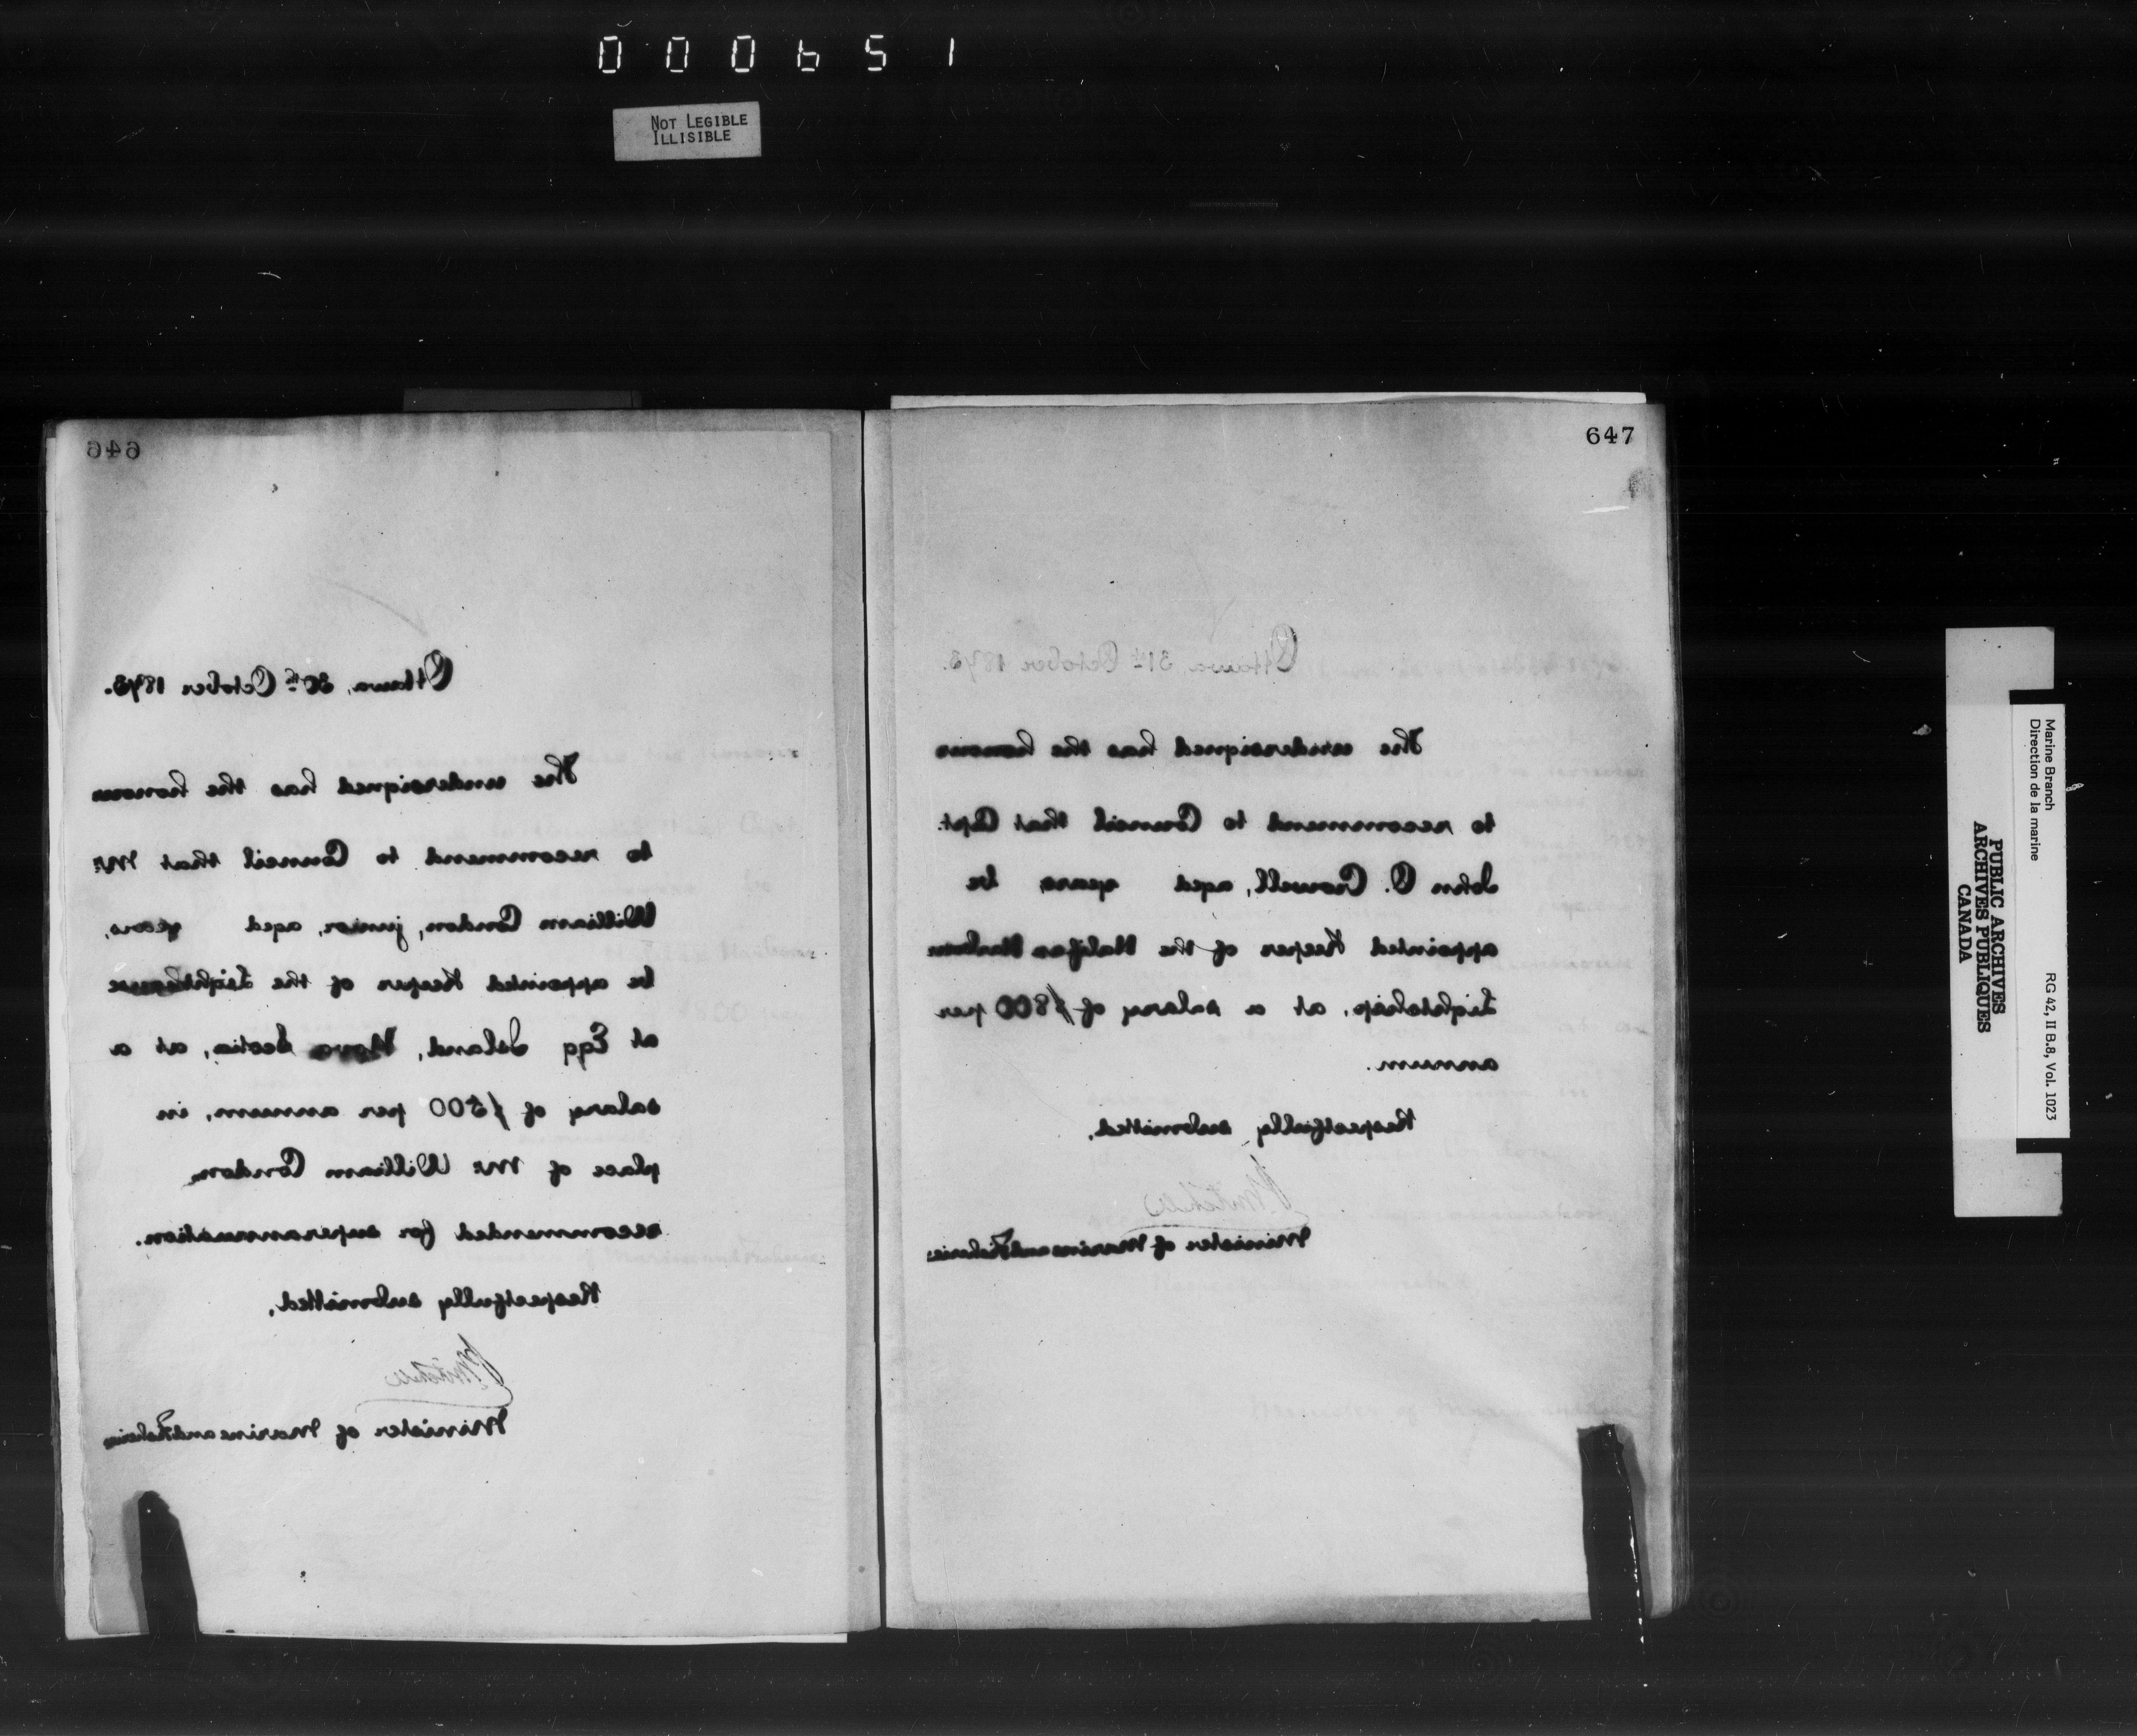 000651
NOT LEGIBLE
ILLISIBLE
646
Ottawa, 30th October 1873.
The undersigned has the honour
to recommend to Council that Mr.
William Condon, junior, aged years,
be appointed Keeper of the Lighthouse
at Egg Island, Nova Scotia, at a
salary of $500 per annum, in
place of Mr. William Condon
recommended for superannuation.
Respectfully submitted,
P Mitchell
Minister of Marine and Fisheries
647
Ottawa 31st October 1873.
The undersigned has the honour
to recommend to Council that Capt.
John C. Crowell, aged years, be
appointed Keeper of the Halifax Harbour
Lightship, at a salary of $800 per
annum.
Respectfully submitted,
P Mitchell
Minister of Marine and Fisheries
PUBLIC ARCHIVES
ARCHIVES PUBLIQUES
CANADA
Marine Branch
Direction de la marine
RG 42, II B.8, Vol. 1023